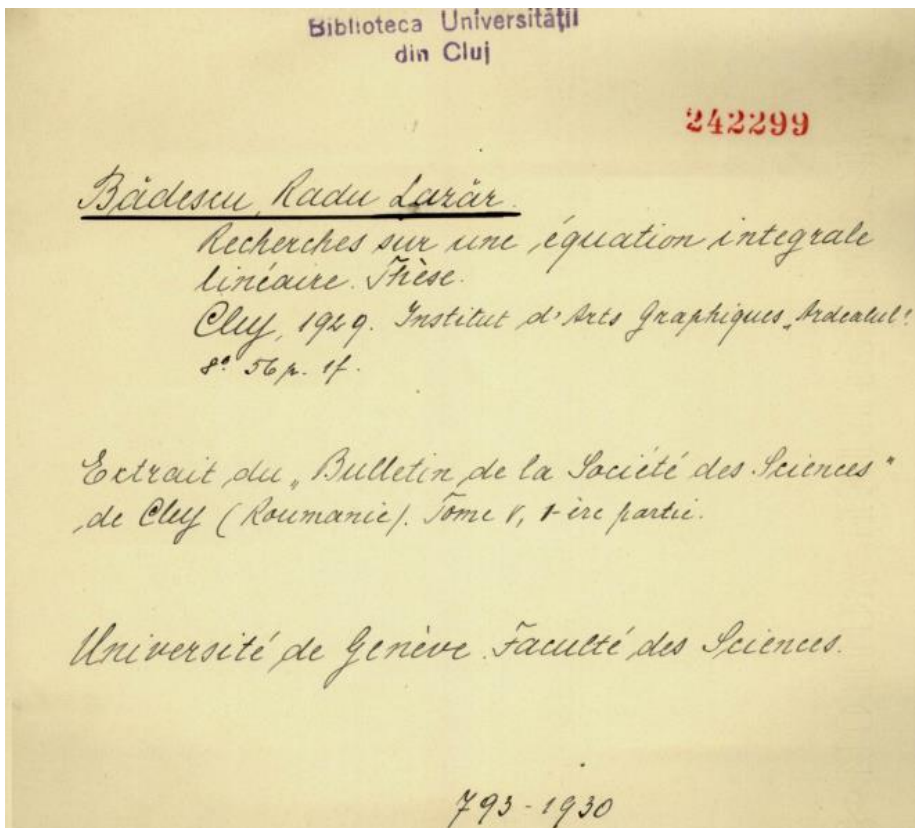 Biblioteca Universității
din Cluj
242299
Bădescu, Radu Lazăr.
Recherches sur une équation integrale
linéaire. Thèse.
Cluj, 1929. Institut d'Arts Graphiques „Ardealul".
8º 56 p. 1 f.
Extrait du „Bulletin de la Société des Sciences"
de Cluj (Roumanie). Tome V, 1-ère partie.
Université de Genève. Faculté des Sciences.
793-1930